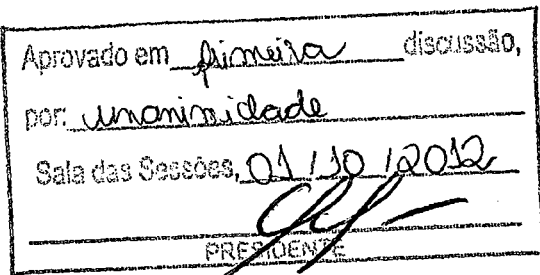 Aprovado em primeira discussão,
por: unanimidade
Sala das Sessões, 01/10/2012
PRESIDENTE